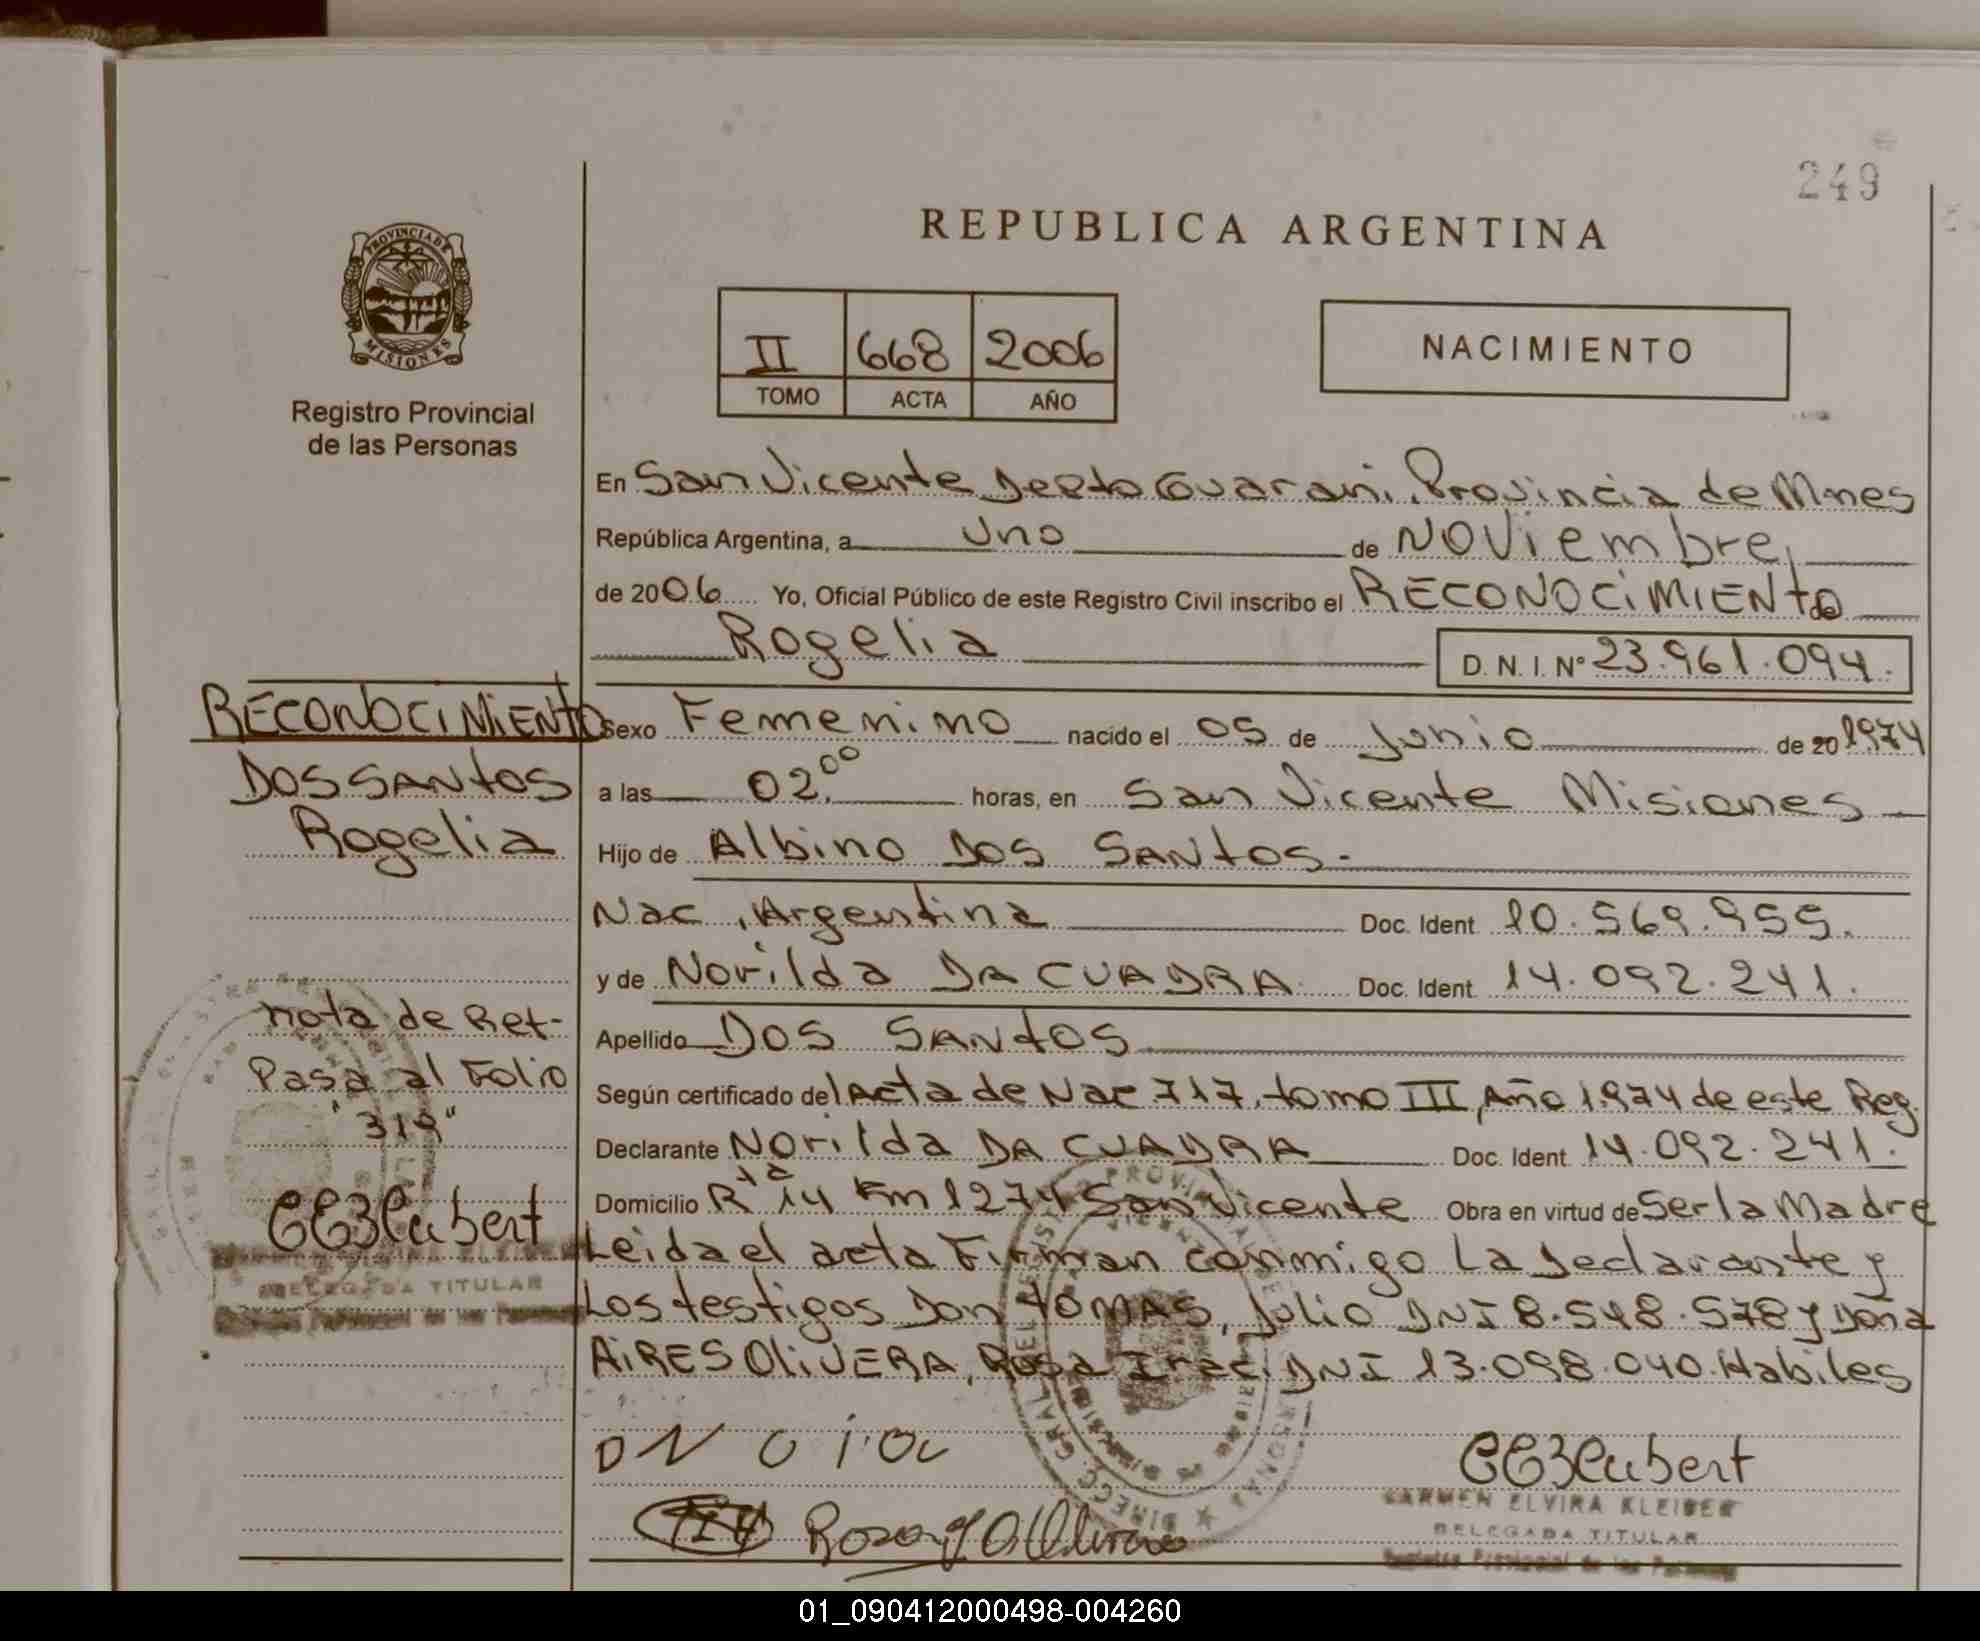 249
REPUBLICA ARGENTINA
PROVINCIA DE
MISIONES
Registro Provincial
de las Personas
II 668 2006
TOMO ACTA AÑO
NACIMIENTO
En San Vicente Depto Guarani, Provincia de Mnes
República Argentina, a uno de NOViembre,
de 2006 Yo, Oficial Público de este Registro Civil inscribo el RECONOCiMIENto de
Rogelia D. N. I. Nº 23.961.094.
RECONOCiMiENTO
DOS SANtOS
Rogelia
Sexo Femenino nacido el 05 de Junio de 20 1974
a las 02.00 horas, en San Vicente Misiones
Hijo de Albino DOS SANtOS.
Nac, Argentina Doc. Ident 10.569.955.
y de Norilda DA CUADRA. Doc. Ident. 14.092.241.
Apellido DOS SANtOS
Según certificado del Acta de Nac 717, tomo III, Año 1.974 de este Reg.
Declarante NOrilda DA CUADRA Doc. Ident. 14.092.241.
Domicilio Rta 14 Km 1274 San Vicente Obra en virtud de Ser la Madre
Leida el acta Firman conmigo La Declarante y
Los testigos Don TOMAS, Julio DNI 8.548.578 y Doña
AiRES OliVERA, Rosa DNI 13.098.040. Habiles
nota de Ret-
Pasa al Folio
"319"
DELEGADA TITULAR
CARMEN ELVIRA KLEIBER
DELEGADA TITULAR
Registro Provincial de las Personas
01_090412000498-004260